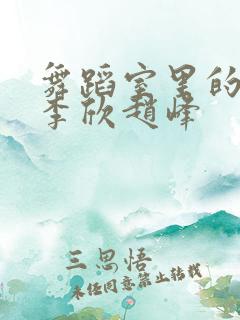 舞蹈室里的
李欣赵峰
三思悟
未经同意禁止转载